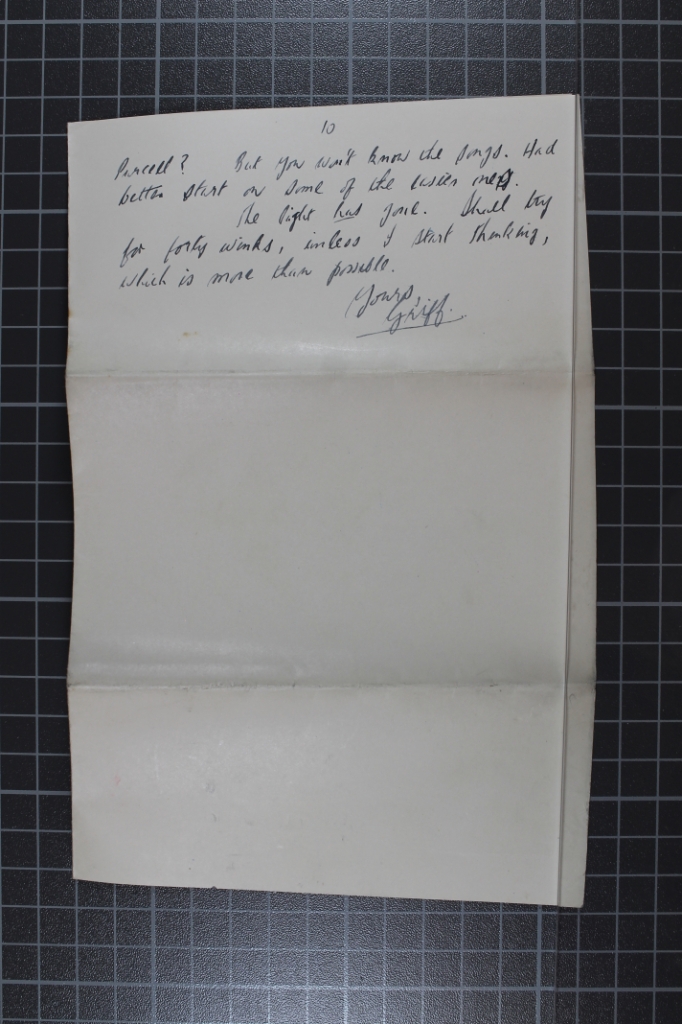 10
Purcell? But you won't know the songs. Had
better start on some of the easier ones.
The light has gone. Shall try
for forty winks, unless I start thinking,
which is more than possible.
Yours,
Griff.